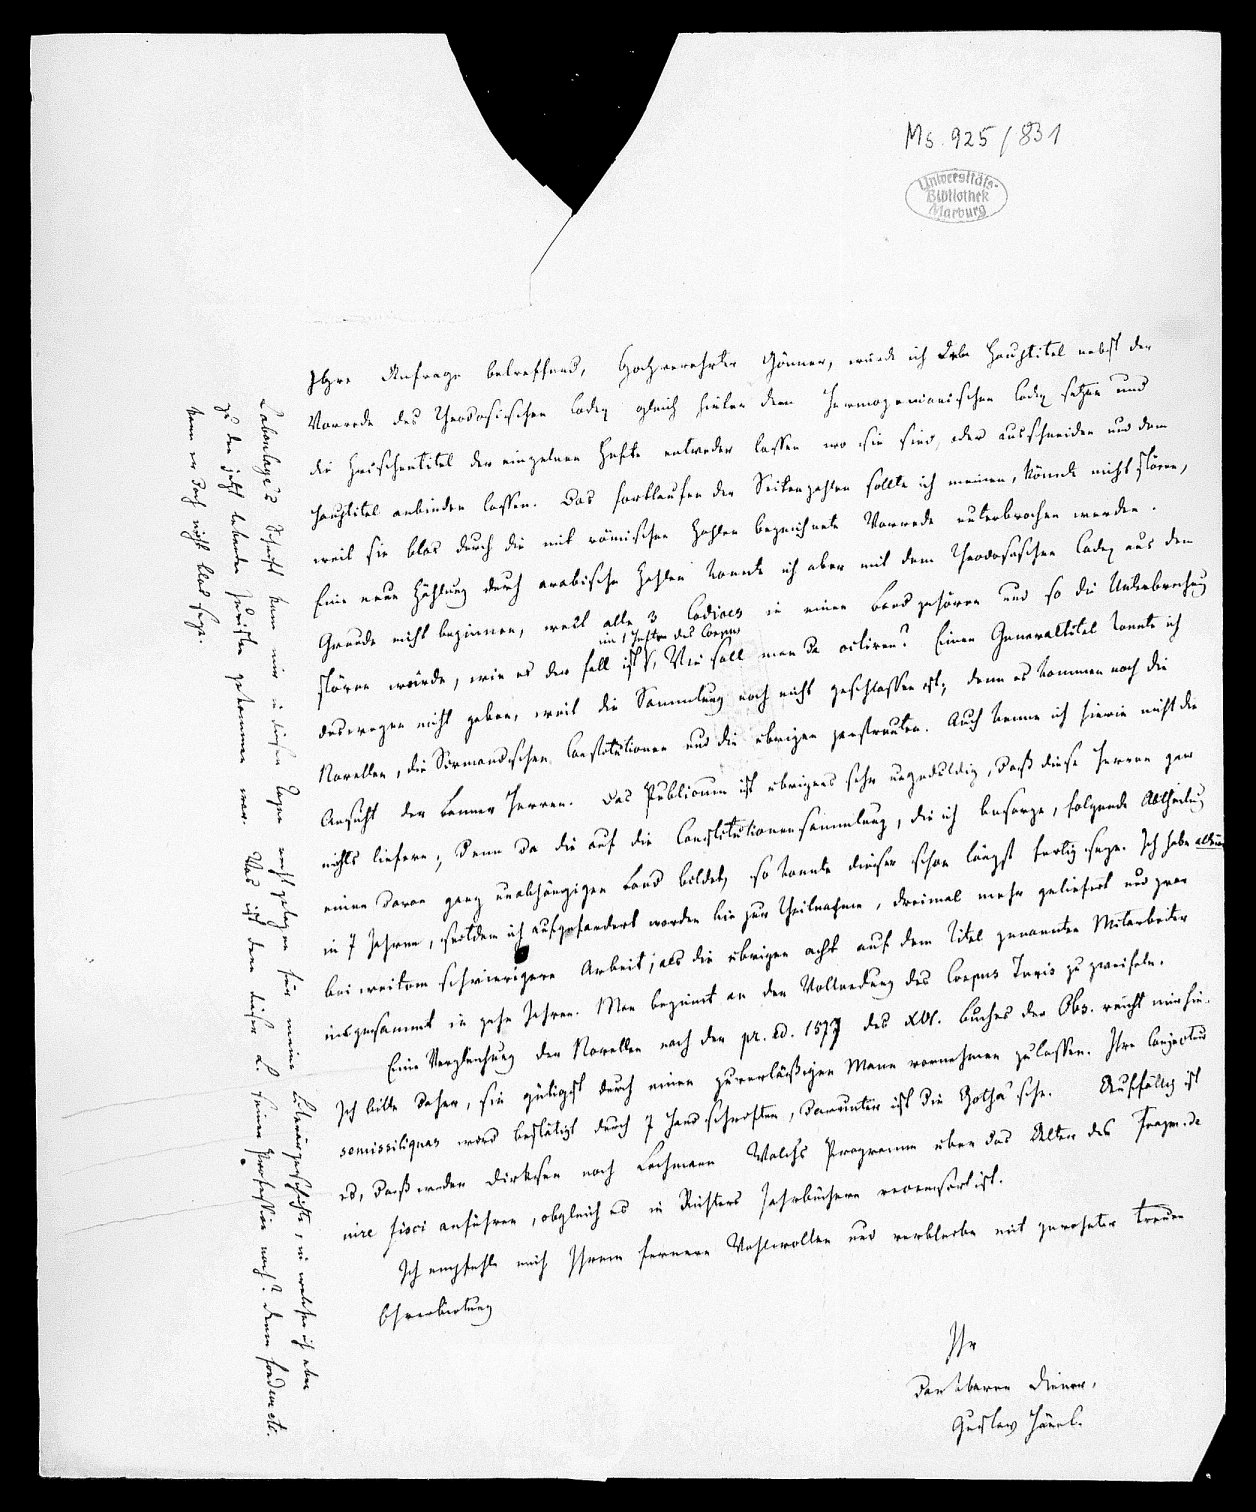 Ms. 925/831
Universitäts-
Bibliothek
Marburg
Ihre Anfrage betreffend, Hochverehrter Gönner, würde ich den Haupttitel nebst der
Vorrede des Theodosischen Codex gleich hinter dem Hermogenianischen Codex setzen und
die Zwischentitel der einzelnen Hefte entweder lassen wo sie sind, oder ausschneiden und dem
Haupttitel anbinden lassen. Das Fortlaufen der Seitenzahlen sollte ich meinen, könnte nicht stören,
weil sie blos durch die mit römischen Zahlen bezeichnete Vorrede unterbrochen werden.
Eine neue Zählung durch arabische Zahlen konnte ich aber mit dem Theodosischen Codex aus dem
Grunde nicht beginnen, weil alle 3 Codices in einen Band gehören und so die Unterbrechung
im 1 Instr. des Corpus
stören würde, wie es der Fall ist. Wie soll man da citiren? Einen Generaltitel konnte ich
deswegen nicht geben, weil die Sammlung noch nicht geschlossen ist; denn es kommen noch die
Novellen, die Sirmondschen Constitutionen und die übrigen zerstreuten. Auch kenne ich hierin nicht die
Ansicht der Bonner Herren. Das Publicum ist übrigens sehr ungeduldig, daß diese Herren gar
nichts liefern; denn da die auf die Constitutionensammlung, die ich besorge, folgende Abtheilung
einen davon ganz unabhängigen Band bildet, so konnte dieser schon längst fertig seyn. Ich habe allein
in 7 Jahren, seitdem ich aufgefordert worden bin zur Theilnahme, dreimal mehr geliefert und zwar
bei weitem schwierigere Arbeit, als die übrigen acht auf dem Titel genannten Mitarbeiter
insgesammt in zehn Jahren. Man beginnt an der Vollendung des Corpus Juris zu zweifeln.
Eine Vergleichung der Novellen nach der pr. ed. 1577 des XVI. Buches der Obs. reicht mir hin.
Ich bitte daher, sie gütigst durch einen zuverläßigen Mann vornehmen zu lassen. Ihre Conjectur
semissiliquas wird bestätigt durch 7 Handschriften, darunter ist die Gotha'sche. Auffällig ist
es, daß weder Dirksen noch Lachmann Walchs Programm über das Alter des Fragm. de
iure fisci anführen, obgleich es in Richters Jahrbüchern recensirt ist.
Ich empfehle mich Ihrem fernern Wohlwollen und verbleibe mit gewohnter treuer
Ehrerbietung
Ihr
dankbarer Diener,
Gustav Hänel.
Schrift kam mir in diesen Tagen recht gelegen für meine Literärgeschichte, in welcher ich eben
zu den jetzt lebenden Juristen gekommen war. Was ist denn dieser L. seiner Profession nach? denn
kann er doch nicht blos seyn.